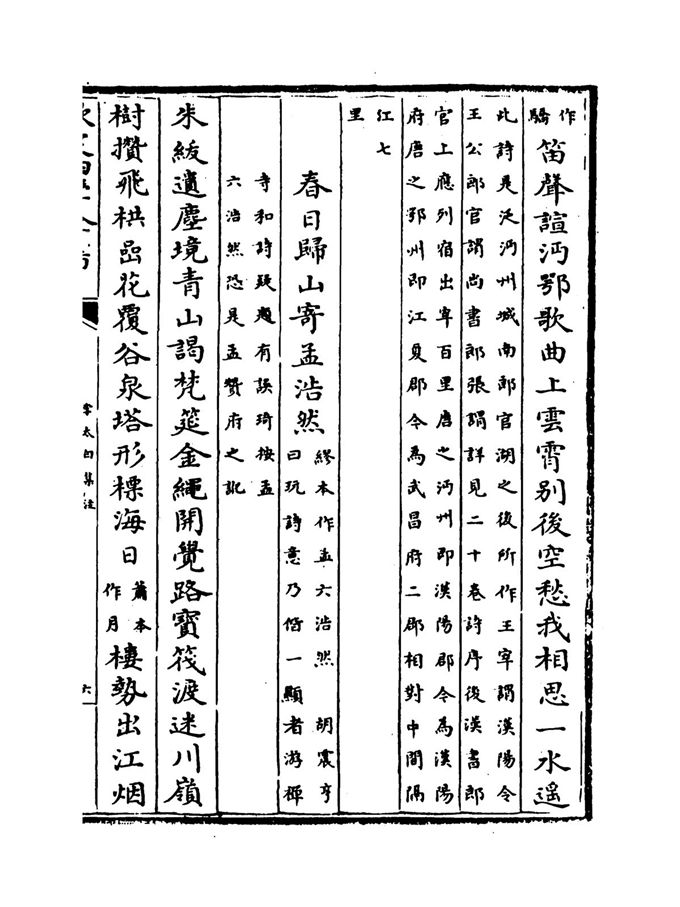 作
驕
笛聲諠沔鄂歌曲上雲霄别後空愁我相思一水遥
此詩是泛沔州城南郎官湖之後所作王宰謂漢陽令
王公郎官謂尚書郎張謂詳見二十卷詩序後漢書郎
官上應列宿出宰百里唐之沔州即漢陽郡今為漢陽
府唐之鄂州即江夏郡今為武昌府二郡相對中間隔
江七
里
春日歸山寄孟浩然
繆本作孟六浩然 胡震亨
曰玩詩意乃偕一顯者游禪
寺和詩疑題有誤琦按孟
六浩然恐是孟贊府之訛
朱紱遺塵境青山謁梵筵金繩開覺路寶筏渡迷川嶺
樹攢飛栱嵒花覆谷泉塔形標海日
蕭本
作月
樓勢出江烟
李太白集注
六